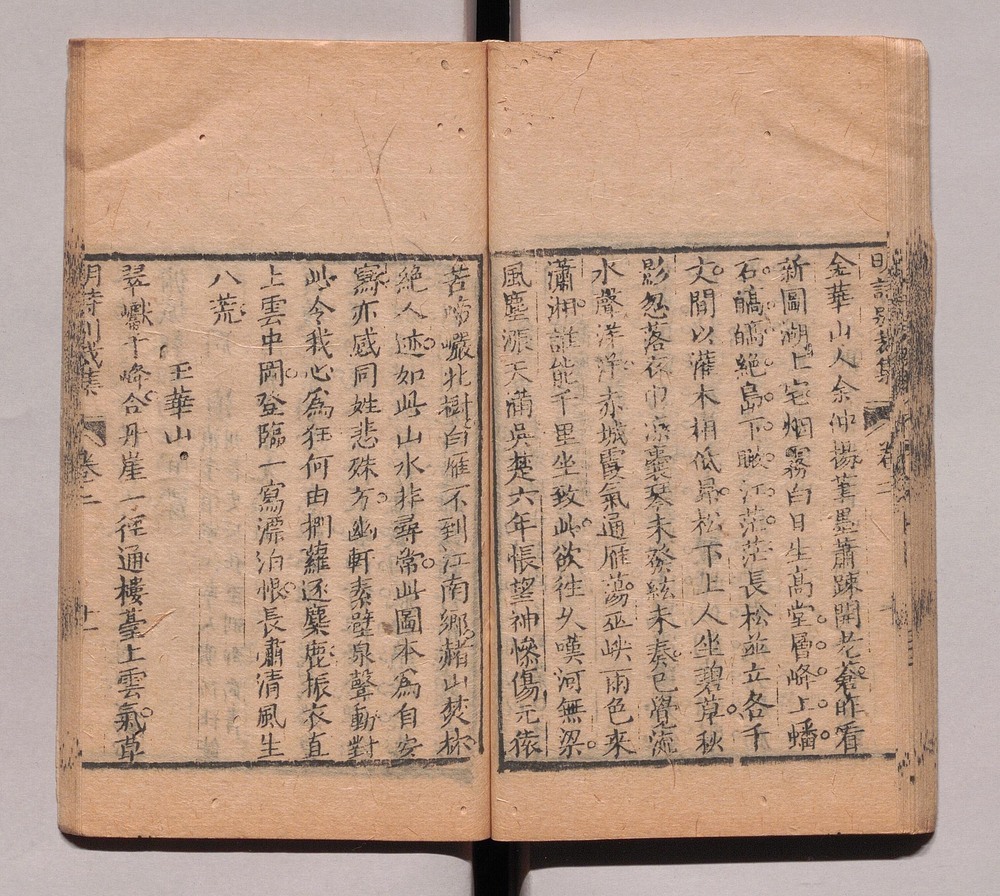 明詩別裁集 卷二
金華山人余仲揚筆墨蕭疎開老蒼昨看
新圖湖上宅烟霧白日生高堂層峰上蟠
石皜皜絕島下瞰江茫茫長松並立各千
丈閒以灌木相低昂松下上人坐碧草秋
影忽落衣巾凉囊琴未發絃未奏已覺流
水聲洋洋赤城霞氣通雁蕩巫峽雨色來
瀟湘誰能千里坐致此欲往久嘆河無梁
風塵漲天滿吳楚六年悵望神慘傷元猿
苦啼巖北樹白雁不到江南鄉赭山焚林
絕人迹如此山水非尋常此圖本為自安
寫亦感同姓悲殊方幽軒素壁泉聲動對
此令我心為狂何由捫蘿逐麋鹿振衣直
上雲中岡登臨一寫漂泊恨長嘯清風生
八荒
玉華山
翠巘千峰合丹崖一徑通樓臺上雲氣草
明詩別裁集 卷二 十一